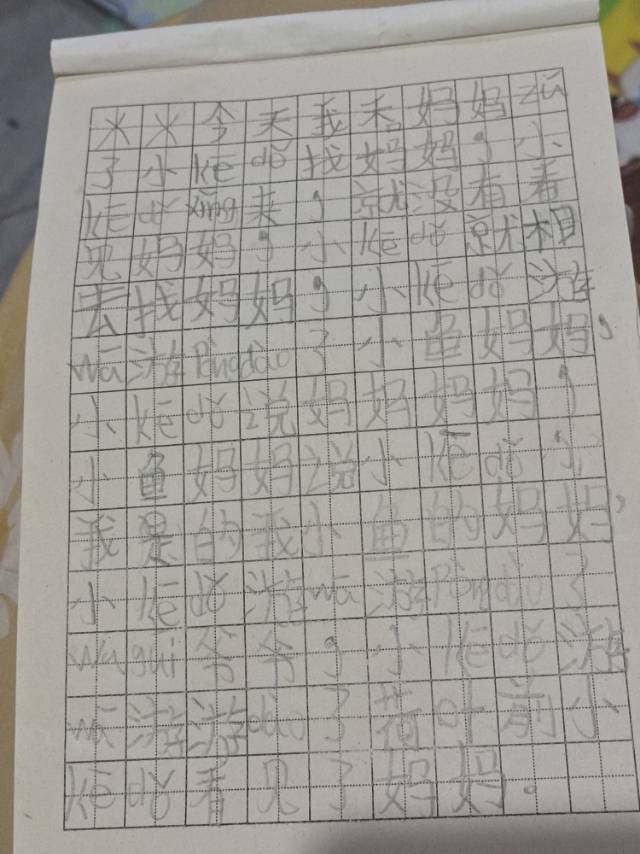 火火今天我来妈妈zǔ
了小kē dǒ找妈妈，小
kē dǒ xǐng来，就没有看
见妈妈，小kē dǒ就相
去找妈妈，小kē dǒ游
wā游Pèngdào了小鱼妈妈，
小kē dǒ说妈妈妈妈，
小鱼妈妈说小kē dǒ，
我是的我小鱼的妈妈，
小kē dǒ游wā游Pèngdào了
wū guī爷爷，小kē dǒ游
wā游游dào了荷叶前小
kē dǒ看见了妈妈。